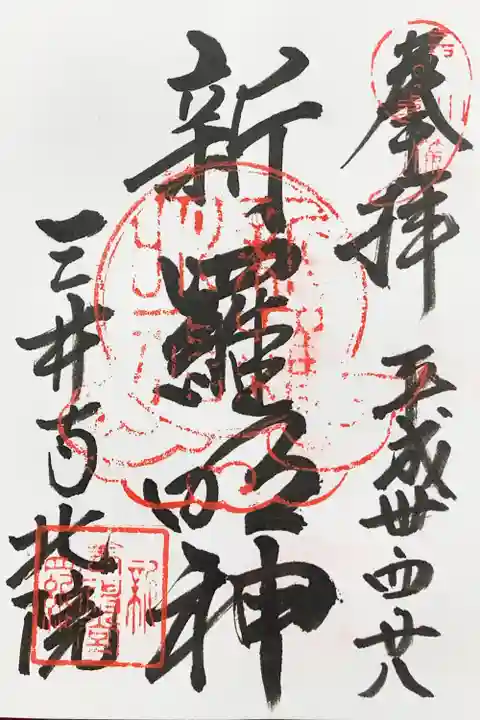 奉拝 平成卅 四 廿八
新羅明神
三井寺 北院